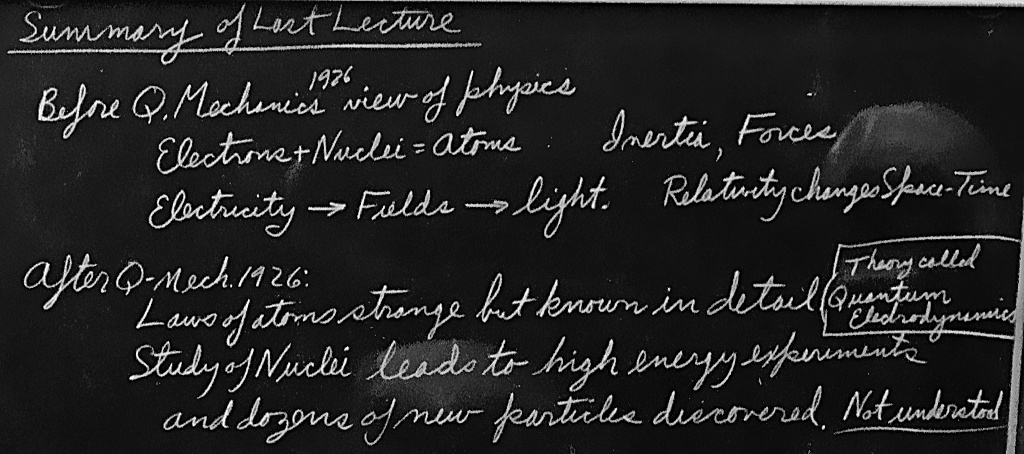 Summary of Last Lecture
Before Q. Mechanics 1926 view of physics
Electrons + Nuclei = atoms. Inertia, Forces
Electricity → Fields → light. Relativity changes Space-Time
After Q-Mech. 1926:
Laws of atoms strange but known in detail (Theory called
Quantum
Electrodynamics
Study of Nuclei leads to high energy experiments
and dozens of new particles discovered. Not understood